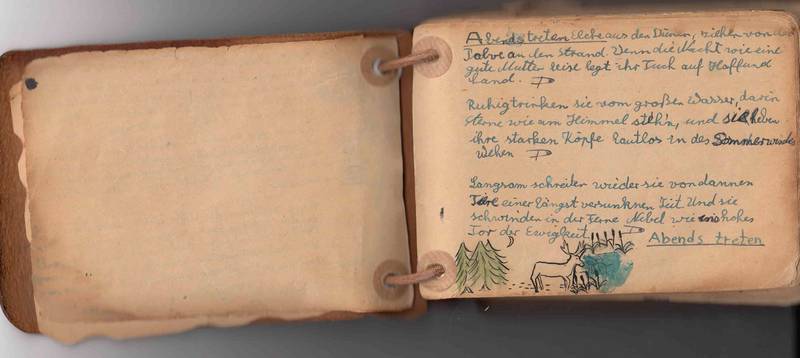 Abends treten Elche aus den Dünen, ziehen von der
Palve an den Strand. Wenn die Nacht wie eine
gute Mutter leise legt ihr Tuch auf Haff und
Land.
Ruhig trinken sie vom großen Wasser, darin
Sterne wie am Himmel steh'n, und sie heben
ihre starken Köpfe lautlos in des Sommerwindes
Wehen
Langsam schreiten wieder sie von dannen
Tiere einer längst versunknen Zeit. Und sie
schwinden in der Ferne Nebel wie ins hohes
Tor der Ewigkeit.
Abends treten